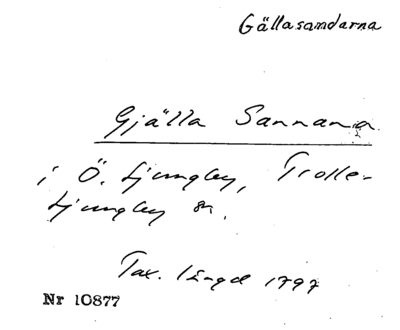 Gällasandarna
Gjälla Sannana
i Ö. Ljungby, Trolle-
Ljungby sn.
Tax. längd 1797
Nr 10877